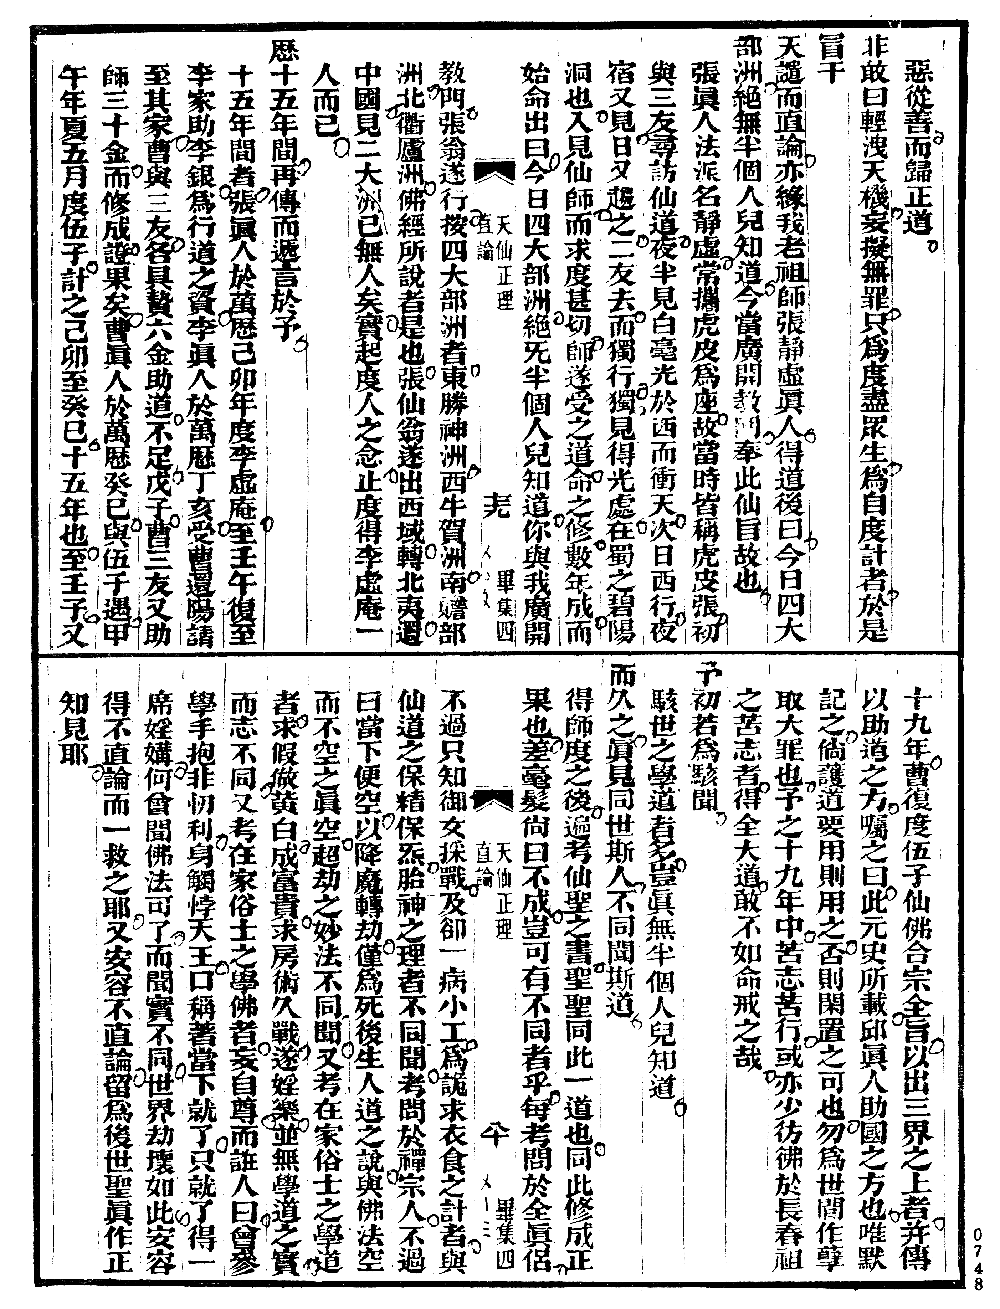 惡從善而歸正道
非敢曰輕洩天機妄擬無罪只爲度盡眾生爲自度計者於是
冒干
天譴而直論亦緣我老祖師張靜虛眞人得道後曰今日四大
部洲絶無半個人兒知道今當廣開教門奉此仙旨故也
張眞人法派名靜虛常攜虎皮爲座故當時皆稱虎皮張初
與三友尋訪仙道夜半見白毫光於西而衝天次日西行夜
宿又見日又趨之二友去而獨行獨見得光處在蜀之碧陽
洞也入見仙師而求度甚切師遂受之道命之修數年成而
始命出曰今日四大部洲絶死半個人兒知道你與我廣開
天仙正理
直論
尭
畢集四
教門張翁遂行按四大部洲者東勝神洲西牛賀洲南贍部
洲北衢廬洲佛經所說者是也張仙翁遂出西域轉北夷還
中國見二大洲已無人矣實起度人之念止度得李虛庵一
人而已
歷十五年間再傳而遞言於予
十五年間者張眞人於萬歷己卯年度李虛庵至壬午復至
李家助李銀爲行道之資李眞人於萬歷丁亥受曹還陽請
至其家曹與三友各具贄六金助道不足戊子曹三友又助
師三十金而修成證果矣曹眞人於萬歷癸巳與伍子遇甲
午年夏五月度伍子計之己卯至癸巳十五年也至壬子又
十九年曹復度伍子仙佛合宗全旨以出三界之上者并傳
以助道之方囑之曰此元史所載邱眞人助國之方也唯默
記之倘護道要用則用之否則閑置之可也勿爲世間作孽
取大罪也予之十九年中苦志苦行或亦少彷彿於長春祖
之苦志者得全大道敢不如命戒之哉
予初若爲駭聞
駭世之學道者多豈眞無半個人兒知道
而久之眞見同世斯人不同聞斯道
得師度之後遍考仙聖之書聖聖同此一道也同此修成正
果也差毫髮尙曰不成豈可有不同者乎每考問於全眞侶
天仙正理
直論
畢集四
不過只知御女採戰及卻一病小工爲詭求衣食之計者與
仙道之保精保炁胎神之理者不同聞考問於禪宗人不過
曰當下便空以降魔轉劫僅爲死後生人道之說與佛法空
而不空之眞空超劫之妙法不同聞又考在家俗士之學道
者求假做黄白成富貴求房術久戰遂婬樂並無學道之實
而志不同又考在家俗士之學佛者妄自尊而誑人曰曾參
學手抱非切利身觸悖天王口稱著當下就了只就了得一
席婬媾何曾聞佛法可了而聞實不同世界劫壞如此安容
得不直論而一救之耶又安容不直論留爲後世聖眞作正
知見耶
0748